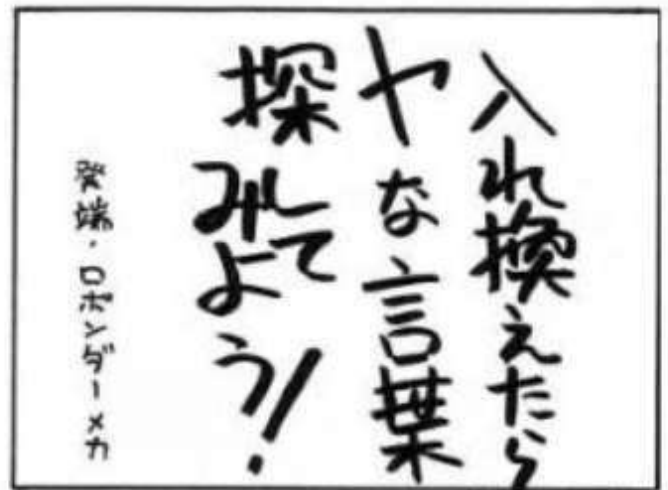 入れ換えたら
ヤな言葉
探して
みよう!
発端・ロボンダーメカ